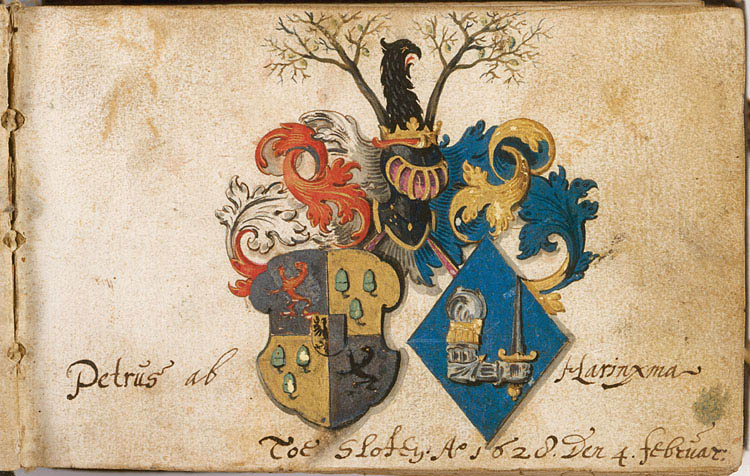 Petrus ab Harinxma
Toe Sloten. Aº 1628. Den 4. februar: